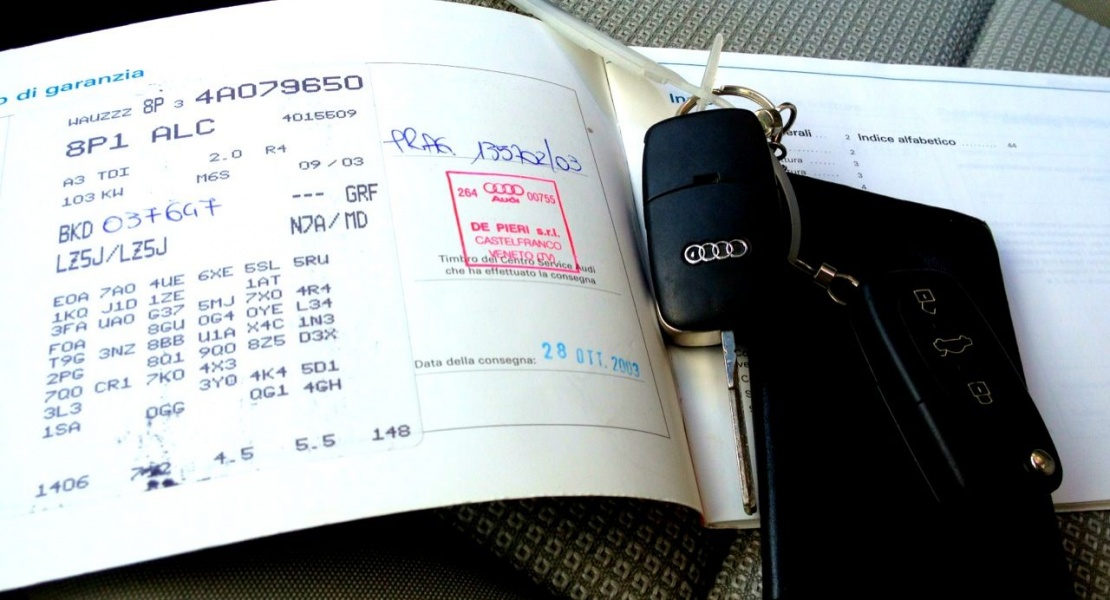 o di garanzia
WAUZZZ 8P 3 4A079650
8P1 ALC 4015509
A3 TDI 2.0 R4
103 KW M6S 09 / 03
BKD 037647 --- GRF
LZ5J/LZ5J N7A/MD
E0A 7A0 4UE 6XE 5SL 5RU
1KQ J1D 1ZE 1AT
3FA UA0 G37 5MJ 7X0 4R4
F0A 8GU 0G4 0YE L34
T9G 3NZ 8BB U1A X4C 1N3
2PG 8Q1 9Q0 8Z5 D3X
7Q0 CR1 7K0 4X3
3L3 3Y0 4K4 5D1
1SA QGG QG1 4GH
1406 4.5 5.5 148
PRAG. 135702/03
264 Audi 00755
DE PIERI s.r.l.
CASTELFRANCO
VENETO (TV)
Timbro del Centro Service Audi
che ha effettuato la consegna
Data della consegna: 28 OTT. 2003
In
erali 2 Indice alfabetico 44
2
tura 3
3
4